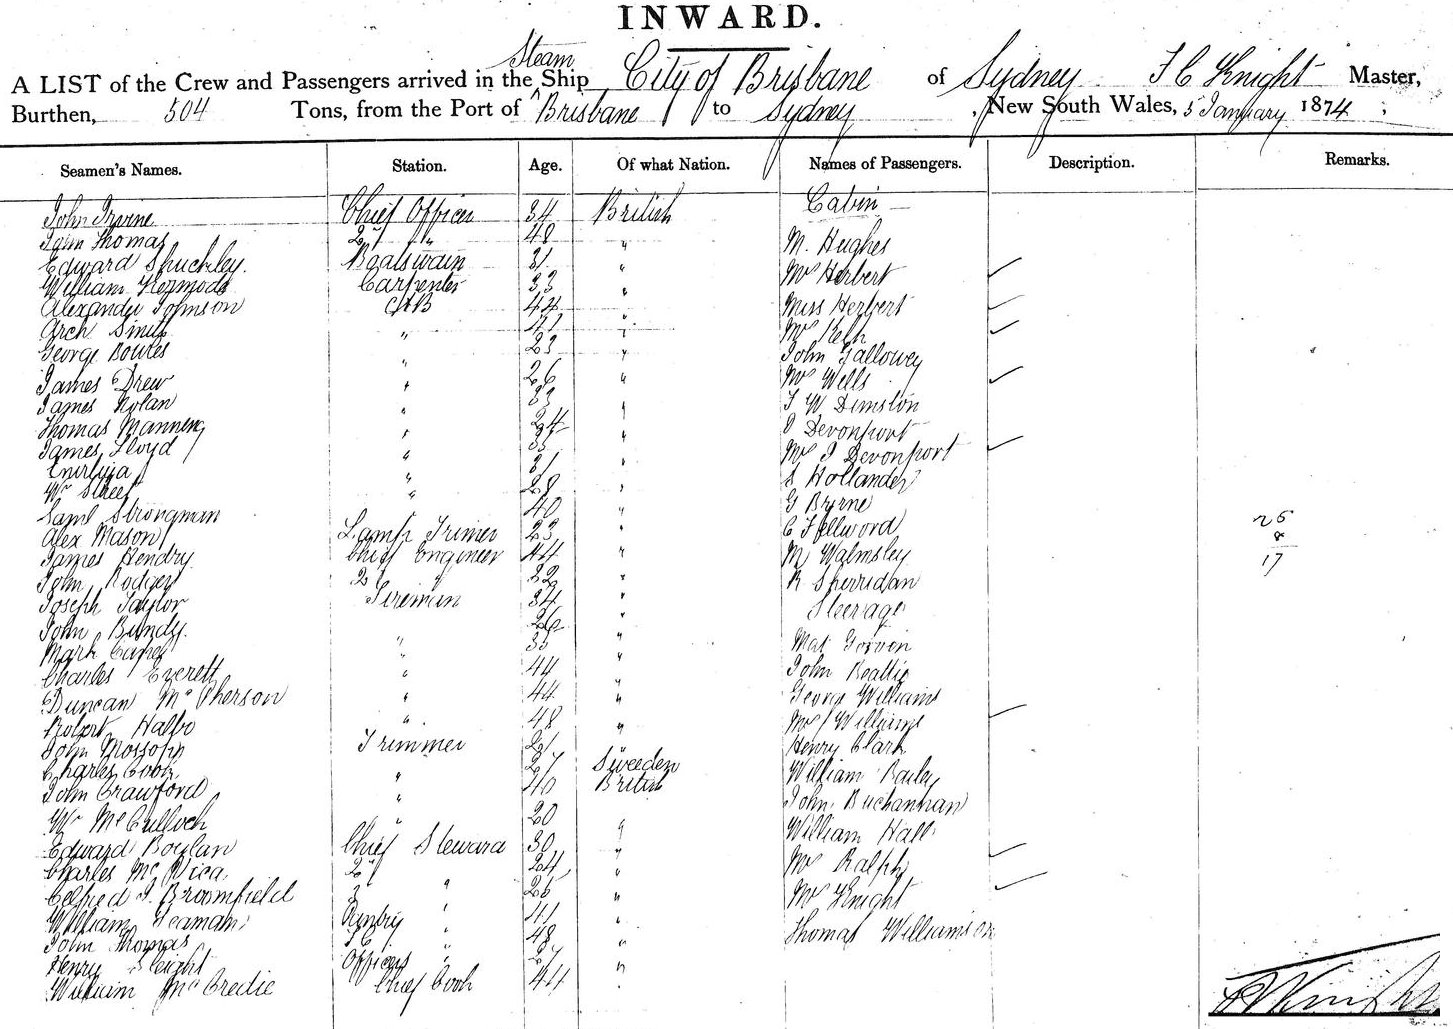 INWARD.
Steam
A LIST of the Crew and Passengers arrived in the Ship City of Brisbane of Sydney F C Knight Master,
Burthen, 504 Tons, from the Port of Brisbane to Sydney, New South Wales, 5 January 1874;
Seamen's Names. Station. Age. Of what Nation. Names of Passengers. Description. Remarks.
John Irvine Chief Officer 34 British Cabin
John Thomas 2d " 48 " M. Hughes
Edward Shuckley. Boatswain 31 " Mrs Herbert ✓
William Kermode Carpenter 33 "
Alexander Johnson AB 44 " Miss Herbert ✓
Arch Smith " 41 " Mrs ✓
George Bowles " 23 " John Gallowey
James Drew " 26 " Mrs Wells ✓
James Nolan " 33 " F W Dimston
Thomas Manning " 24 " D Devonport
James Lloyd " 35 " Mrs J Devonport ✓
" 31 " S Hollander
Wm Street " 28 " G Byrne
Saml Strongman 40 "
Alex Mason Lamp Trimer 23 " C Fellword 25
James Hendry Chief Engineer 44 " M Walmsley 8
John Rodger 2d " 22 " R Sherridan 17
Joseph Taylor Fireman 34 " Steerage
John Bundy. " 26 "
Mark " 35 " Mat
Charles Everett " 44 " John Beattie
Duncan McPherson " 44 " George Williams
Robert " 48 " Mrs Williams ✓
John Trimmer 21 " Henry Clark
Charles Cook " 27 Sweeden William Bailey
John Crawford " 40 British
Wm McCulloch " 20 " John Buchannan
Edward Boylan Chief Steward 30 " William Hall
Charles 2d 24 " Mrs Ralph ✓
J. Broomfield 3 " 26 " Mrs Knight ✓
William Seaman Pantry " 41 "
John Thomas " 48 " Thomas Williamson
Henry Sleight Officers " 27 "
William McCredie Chief Cook 44 "
F C Knight